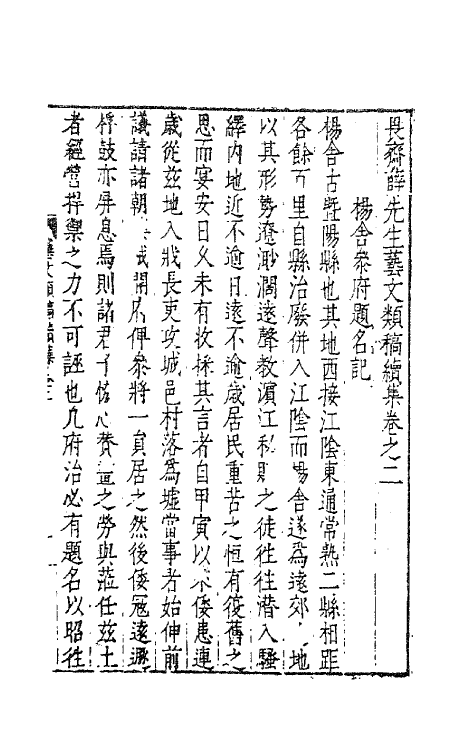 畏齋薛先生藝文類稿續集卷之二
楊舍叅府題名記
楊舍古曁陽縣也其地西接江陰東通常熟二縣相距
各餘百里自縣治廢併入江陰而楊舍遂爲遠郊地
以其形勢遼渺濶遠聲教濵江私之徒徃徃潜入騷
繹内地近不逾日遠不逾歲居民重苦之恒有復舊之
思而宴安日乆未有收採其言者自甲寅以來倭患連
歲從兹地入戕長吏攻城邑村落爲墟當事者始伸前
議請諸朝開府俾叅將一員居之然後倭冦遠遯
桴鼓亦屏息焉則諸君子之勞與蒞任兹土
者經營捍禦之力不可誣也凡府治必有題名以昭徃